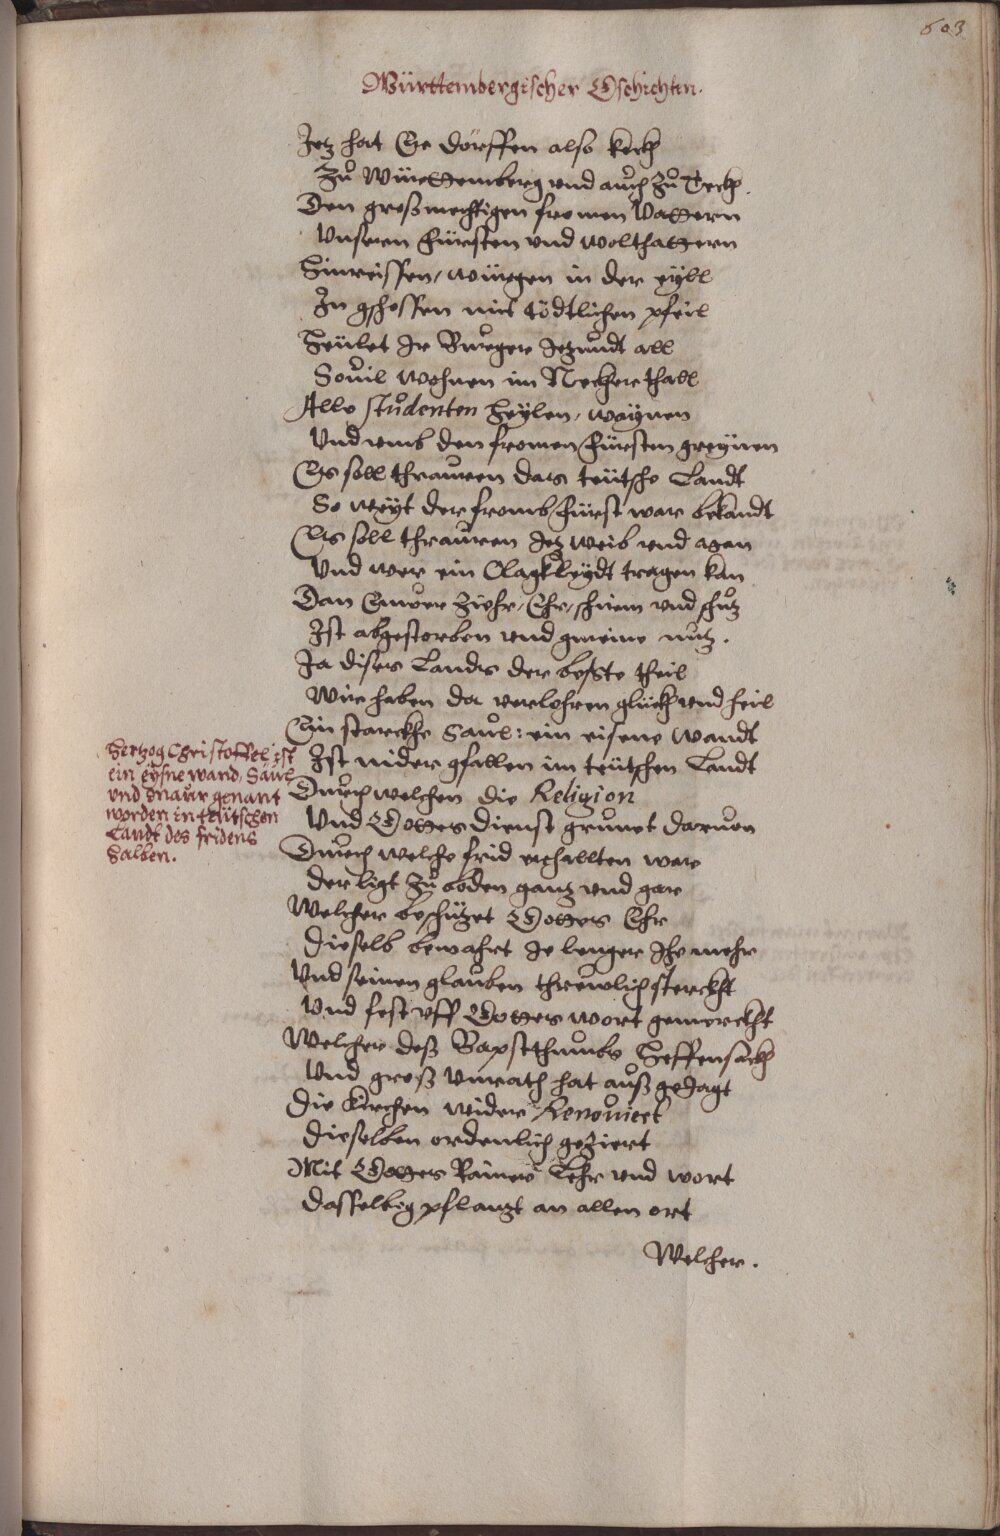 603
Württembergischer Gschichten.
Jetz hat Er dörffen also keckh
Zů Württemberg vnd aůch zů Teckh.
Den großmechtigen fromen Vattern
Vnseren Fürsten vnd wolthattern
Hinreissen, würgen in der eyll
In gschossen mit tödtlichen pfeil
Heület Ir Bürger Jetzůndt all
Souil wohnen im Necher thall
Alle Stůdenten Heylen, waÿnen
Vnd vmb den fromen Fürsten greÿnen
Es soll thrauren das teütsche Landt
So weÿt der fromb Fürst war bekandt
Es soll thrauren Jetz weib vnd man
Vnd wer ein Clagkleydt tragen kan
Dan Eüwer Ziehr, Ehr, schirm vnd schůz
Ist abgestorben vnd gmeine nutz.
Ja dises Landts der beste theil
Wir haben da verlohren glückh vnd heil
Ein starckhe Saůl: ein eisene wandt
Ist nider gfallen im teütschen Landt
Durch welchen die Religion
Vnd Gottes dienst grůnet daruon
Durch welche frid erhallten war
der ligt zů boden gantz vnd gar
Welcher beschützet Gottes Ehr
dieselb bewahrt Je lenger Ihe mehr
Vnd seinen glauben threwlich sterckht
Vnd fest vff Gottes wort gemerckht
Welcher deß Bapstthumbs Heffensackh
Vnd groß vnrath hat außgeJagt
Die Kirchen wider Renouiert
dieselben ordenlich geziert
Mit Gottes Rainer Lehr vnd wort
dasselbig pflantzt an allen ort
Welcher.
Hertzog Christoffel ist
ein eÿsne wand, Saůl
vnd maur genant
worden in teütschen
Landt des fridens
halben.